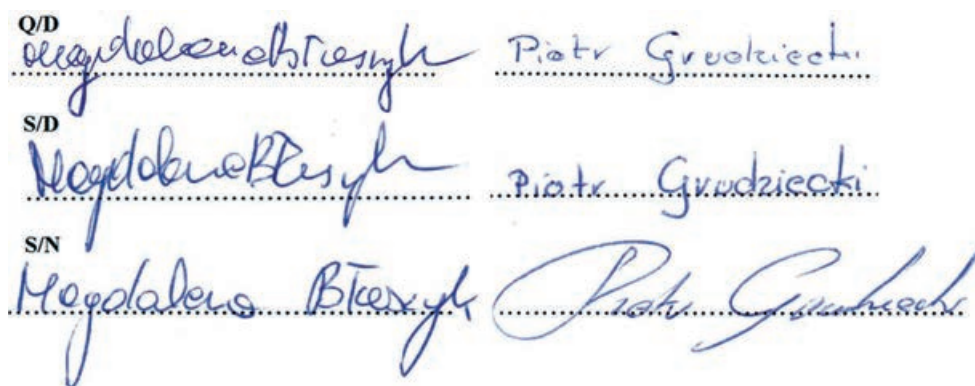 Q/D
Magdalena Błaszyk Piotr Grudziecki
S/D
Magdalena Błaszyk Piotr Grudziecki
S/N
Magdalena Błaszyk Piotr Grudziecki